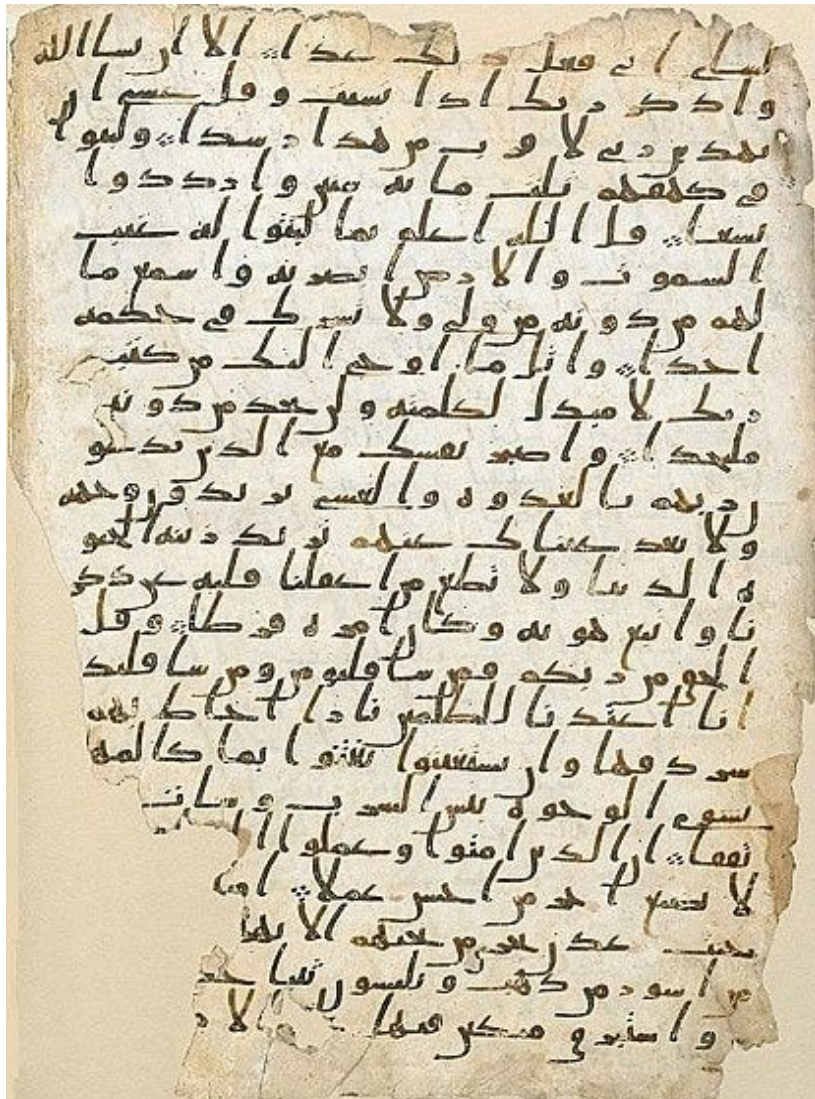 لشاي اني فعل ذلك غدا ۝ الا ان يشا الله
واذكر ربك اذا نسيت وقل عسى ان
يهدين ربي لاقرب من هذا رشدا ۝ ولبثوا
في كهفهم ثلث مائه سنين وازددوا
تسعا ۝ قل الله اعلم بما لبثوا له غيب
السموت والارض ابصر به واسمع ما
لهم من دونه من ولي ولا يشرك في حكمه
احدا ۝ واتل ما اوحي اليك من كتب
ربك لا مبدل لكلمته ولن تجد من دونه
ملتحدا ۝ واصبر نفسك مع الذين يدعو
ن ربهم بالغدوه والعشي يريدون وجهه
ولا تعد عيناك عنهم تريد زينه الحيو
ه الدنيا ولا تطع من اغفلنا قلبه عن ذكر
نا واتبع هويه وكان امره فرطا ۝ وقل
الحق من ربكم فمن شا فليومن ومن شا فليك
انا اعتدنا للظلمين نارا احاط بهم
سردقها وان يستغيثوا يغثوا بما كالمه
يشوي الوجوه بئس الشرب وسات
تفقا ۝ ان الذين امنوا وعملوا ا
لا نضيع اجر من احسن عملا ۝ او
جنت عدن تجري من تحتهم الانها
من اسور من ذهب ويلبسون ثيابا خض
واستبرق متكين فيها الار